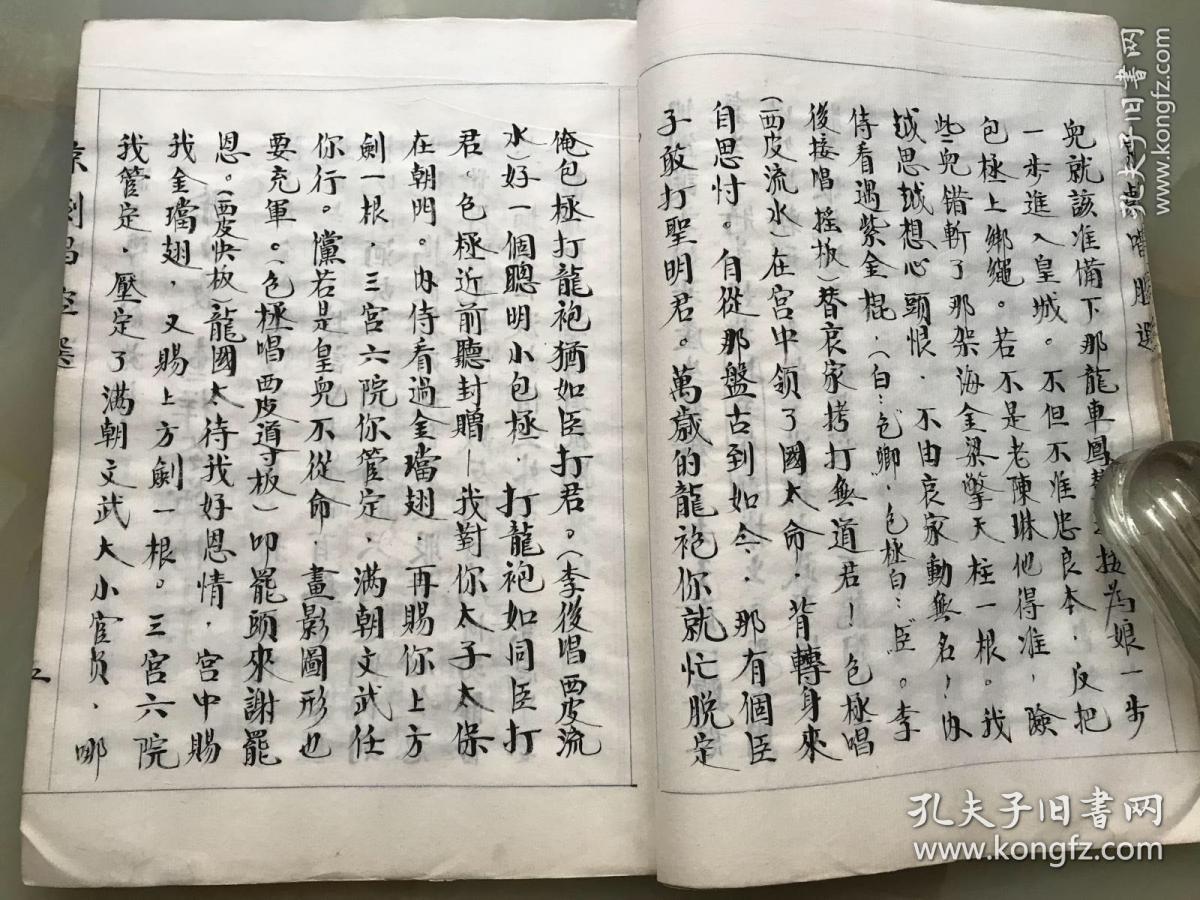 兒就該准備下那龍車鳳 接為娘一步
一步進入皇城。不但不准忠良本，反把
包極上綁繩。若不是老陳琳他得准，險
些兒錯斬了那架海金梁擎天柱一根。我
越思越想心頭恨．不由哀家動無名！內
侍看過紫金棍．（白：包卿．包極白：臣。李
後接唱搖板）替哀家拷打無道君！包極唱
（西皮流水）在宮中領了國太命．背轉身來
自思忖。自從那盤古到如今．那有個臣
子敢打聖明君。萬歲的龍袍你就忙脫定
俺包極打龍袍猶如臣打君。（李後唱西皮流
水）好一個聰明小包極．打龍袍如同臣打
君。包極近前聽封贈—我對你太子太保
在朝門。內侍看過金璫翅．再賜你上方
劍一根．三宮六院你管定．滿朝文武任
你行。懂若是皇兒不從命．畫影圖形也
要充軍。（包極唱西皮導板）叩罷頭來謝罷
恩。（西皮快板）龍國太待我好恩情．宮中賜
我金璫翅．又賜上方劍一根。三宮六院
我管定．壓定了滿朝文武大小官員．哪
孔夫子旧书网
www.kongfz.com
孔夫子旧书网
www.kongfz.com